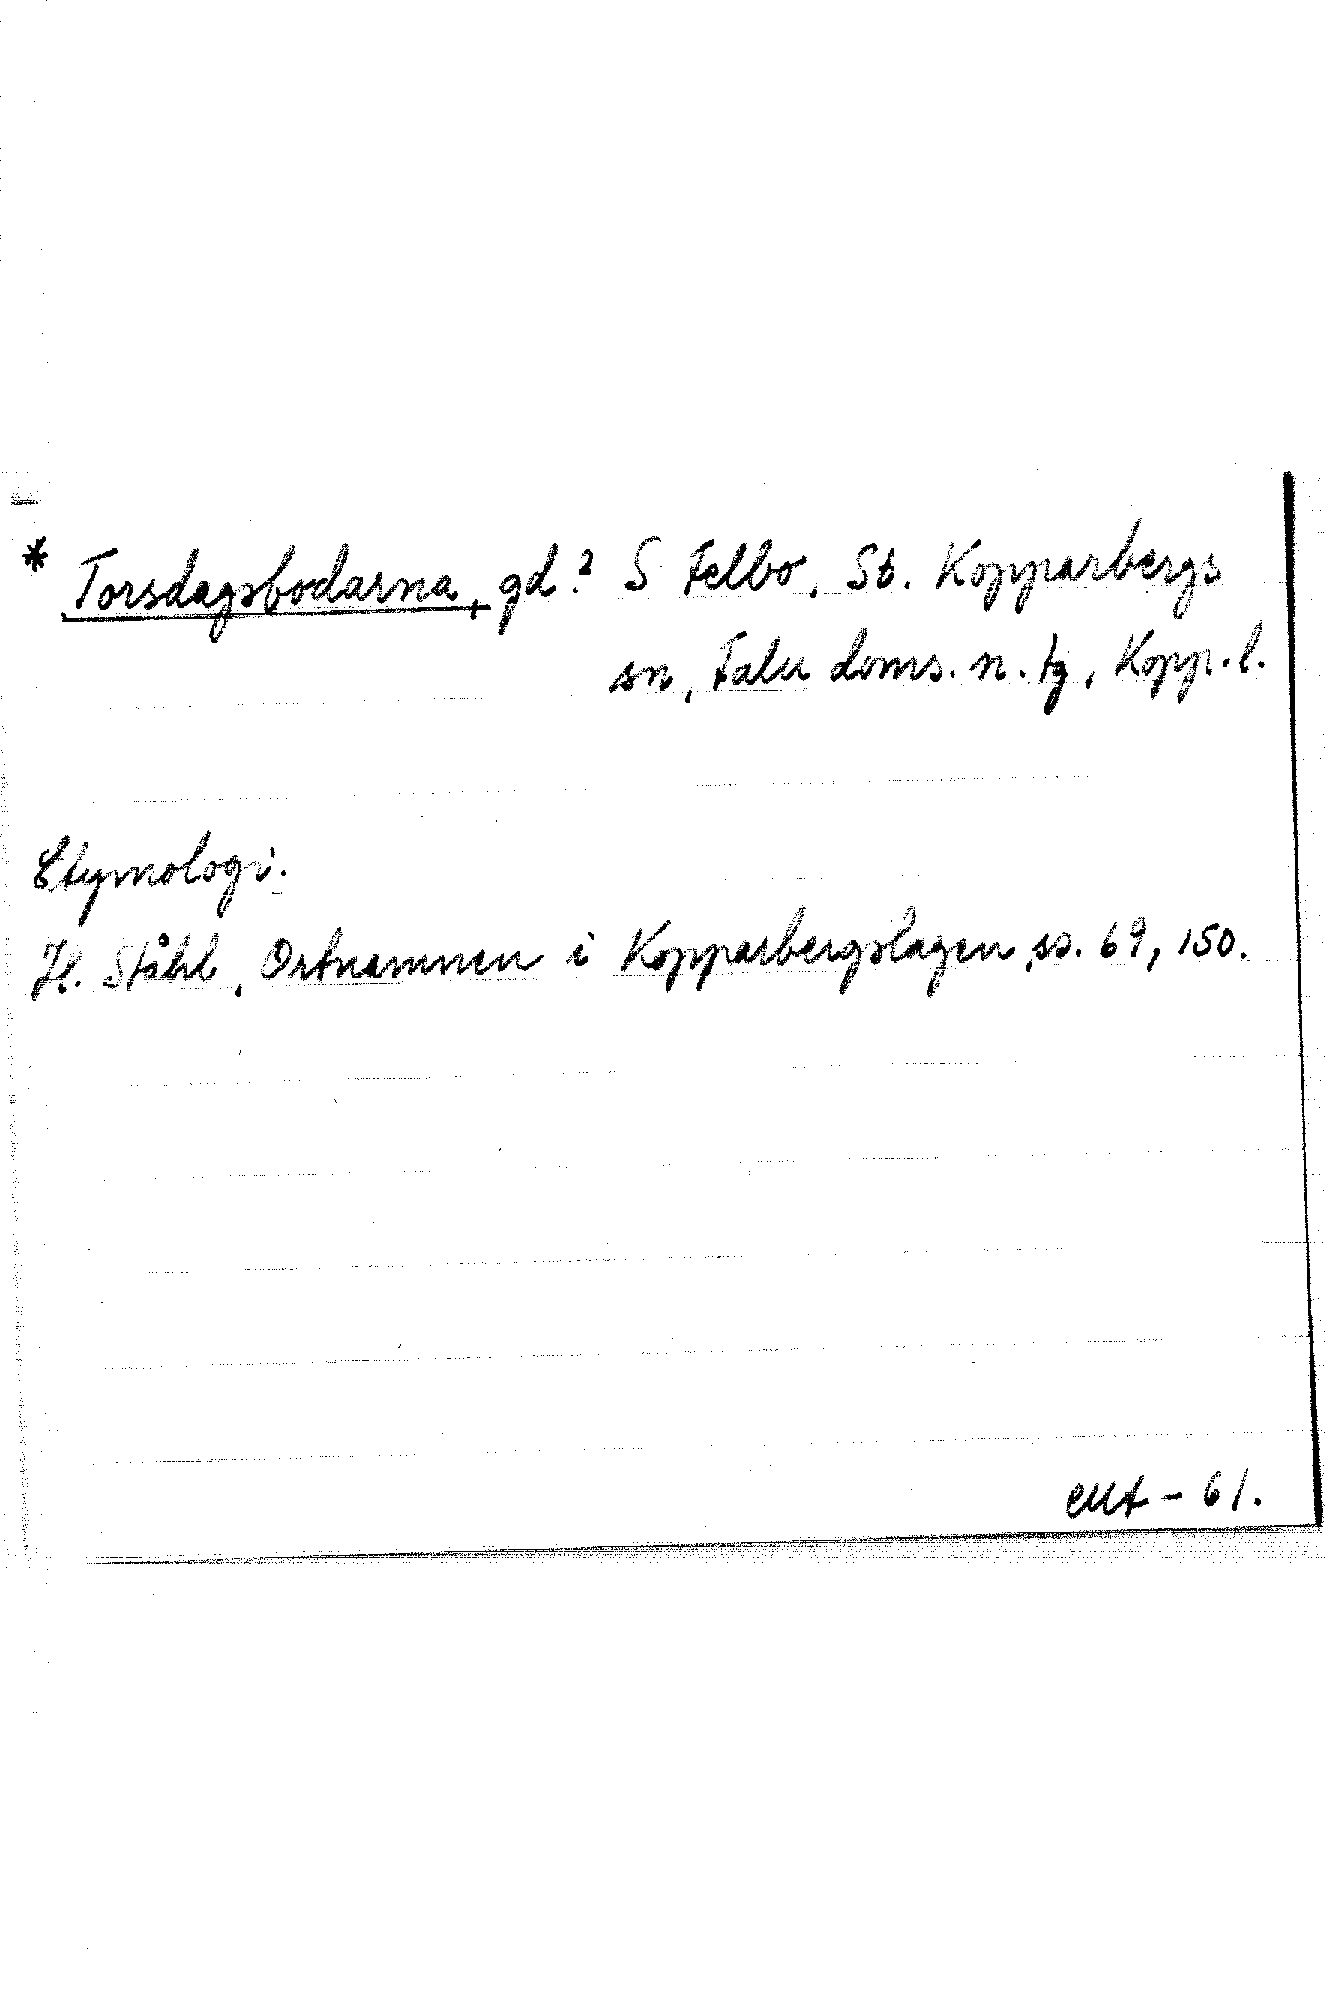 * Torsdagsbodarna, gd? S Felbo, St. Kopparbergs
sn, Falu doms. n. tg, Kopp. l.
Etymologi.
H. Ståhl, Ortnamnen i Kopparbergslagen, ss. 69, 150.
- 61.